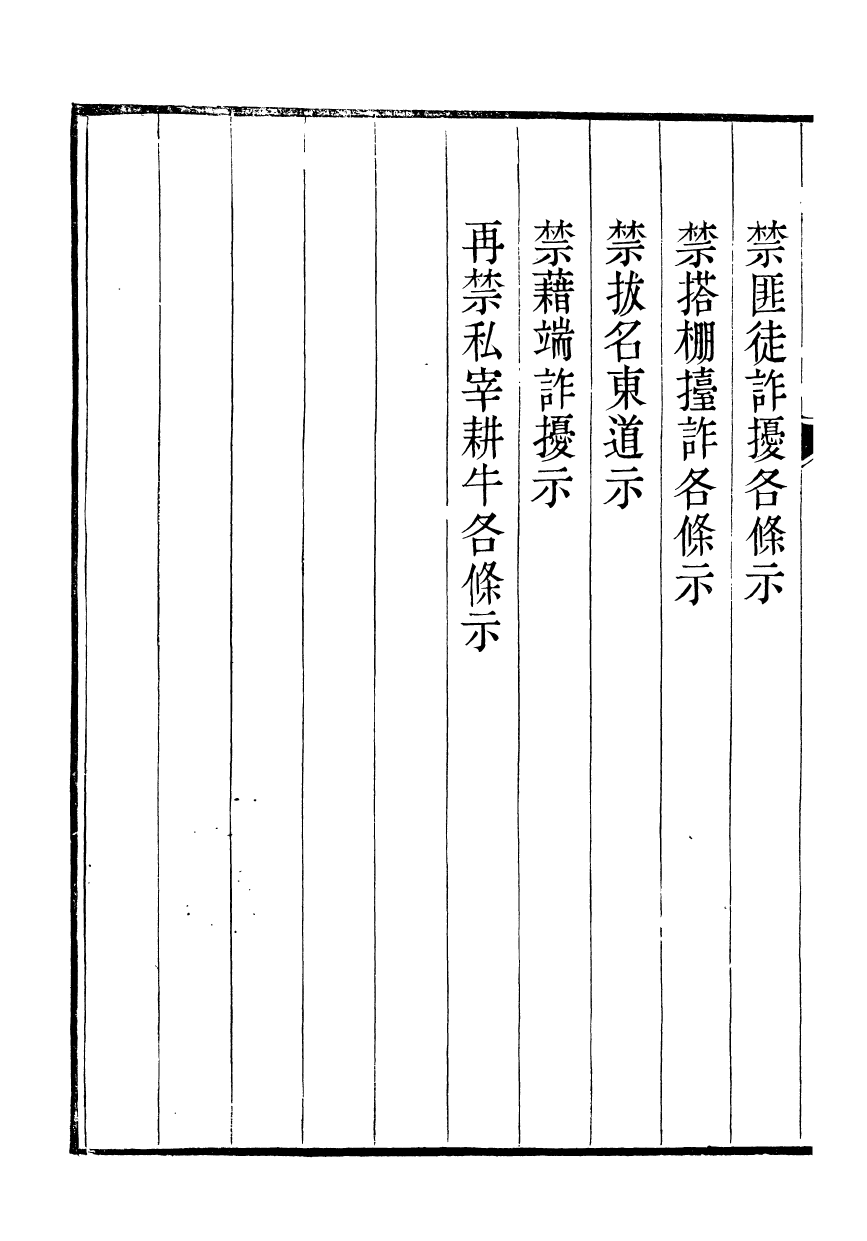 禁匪徒詐擾各條示
禁搭棚擡詐各條示
禁拔名東道示
禁藉端詐擾示
再禁私宰耕牛各條示